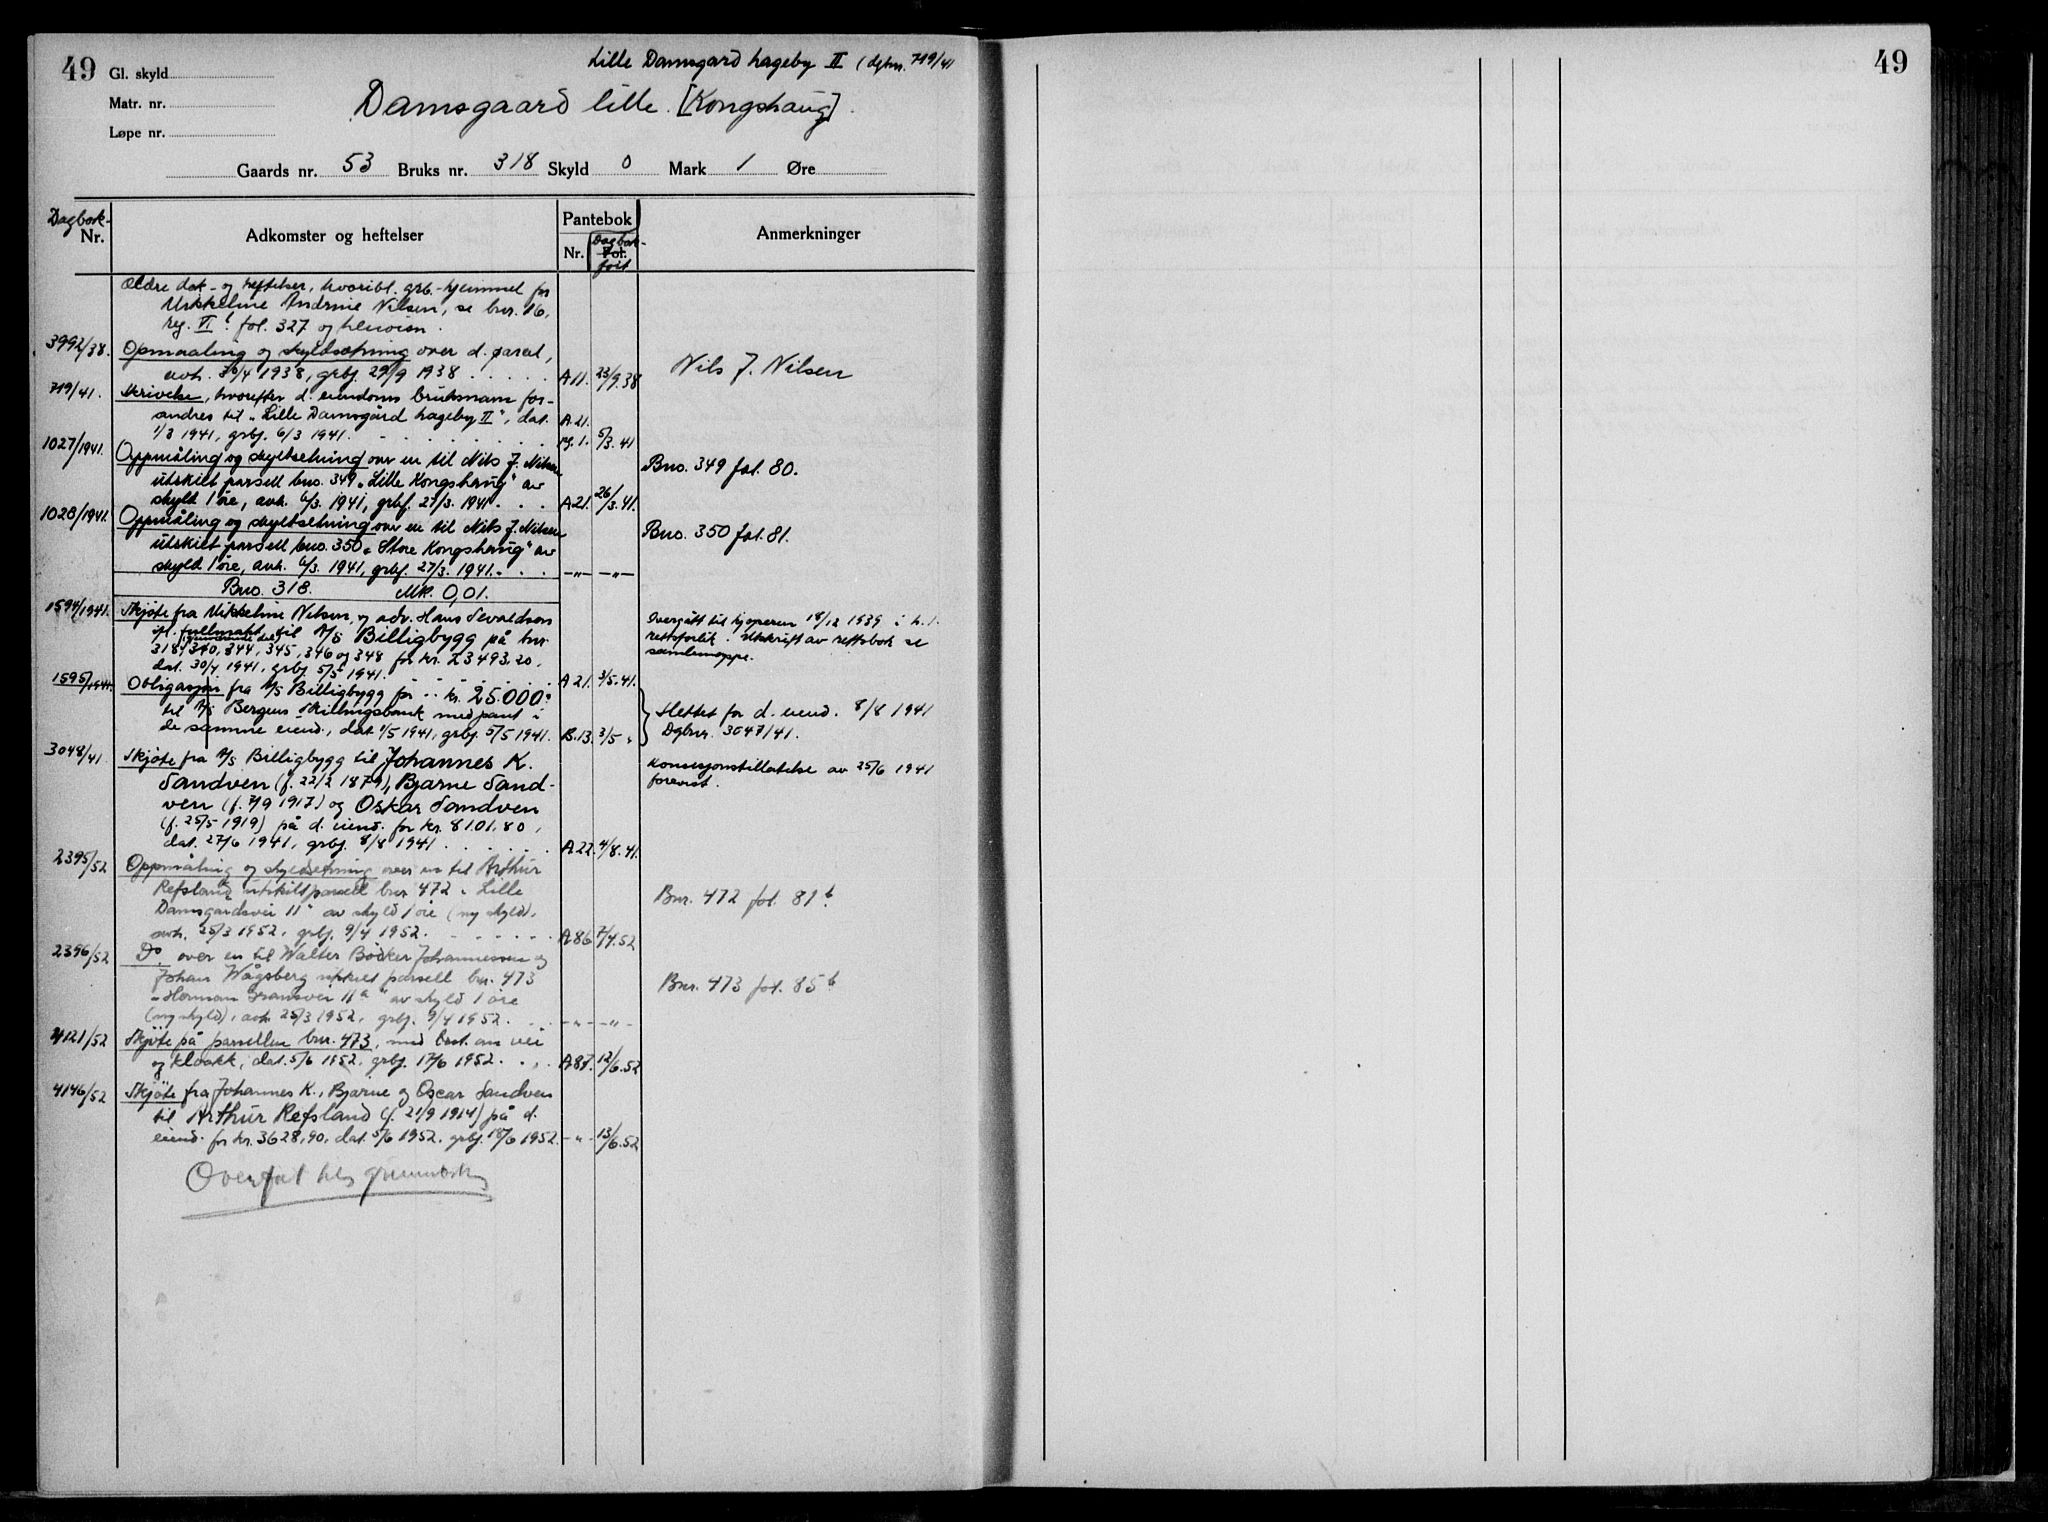 49
Gl. skyld
Lille Damsgard hageby II (dgbnr. 719/41
Matr. nr.
Damsgaard lille. [Kongshaug].
Løpe nr.
Gaards nr. 53 Bruks nr. 318 Skyld 0 Mark 1 Øre
Dagbok-
Nr.
Adkomster og heftelser
Pantebok
Nr.
Dagbok-
Fol.
ført
Anmerkninger
Ældre dok- og heftelser, hvoribl. grb.-hjemmel for
Mikkeline Andrine Nilsen, se bnr. 16,
reg. VI b fol. 327 og henvisn.
3992/38. Opmaaling og skyldsætning over d. parsel,
avh. 30/4 1938, grbf. 29/9 1938 . . . . . A11. 23/9.38
Nils J. Nilsen
719/41. Skrivelse, hvorefter d. eiendoms bruksnavn for-
andres til "Lille Damsgård hageby II", dat. A.21.
1/3 1941, grbf. 6/3 1941. pg. 1. 5/3.41
1027/1941. Oppmåling og skyldsetning over en til Nils J. Nilsen
utskilt parsell bno. 349 "Lille Kongshaug" av
skyld 1 øre, avh. 6/3. 1941, grbf. 27/3. 1941. . . A21. 26/3.41.
Bno. 349 fol. 80.
1028/1941. Oppmåling og skyldsetning over en til Nils J. Nilsen
utskilt parsell bno. 350 "Store Kongshaug" av
skyld 1 øre, avh. 6/3. 1941, grbf. 27/3. 1941. . . —"— —"—
Bno. 350 fol. 81.
Bno. 318. Mk. 0,01.
1594/1941. Skjøte fra Mikkeline Nilsen v/ adv. Hans Sevaldson
ifl. fullmakt til A/S Billigbygg på bnr.
318, 340, 344, 345, 346 og 348 for kr. 23493.20,
dat. 30/4 1941, grbf. 5/5 1941. A21. 3/5.41.
Overgått til kjøperen 18/12 1939 i h.t.
rettsforlik. Utskrift av rettsbok se
samlemappe.
1595/1941. Obligasjon fra A/S Billigbygg for kr. 25.000.-
til A/S Bergens Skillingsbank med pant i
de samme eiend., dat. 1/5 1941, grbf. 5/5 1941. B.13. 3/5 "
Slettet for d. eiend. 8/8 1941
Dgbnr. 3047/41.
3048/41 Skjøte fra A/S Billigbygg til Johannes K.
Sandven (f. 22/2 1879), Bjarne Sand-
ven (f. 7/9 1917) og Oskar Sandven
(f. 25/5 1919) på d. eiend. for kr. 8101.80,
dat. 27/6 1941, grbf. 8/8 1941 . . . . . A22. 4/8.41.
Konsesjonstillatelse av 25/6 1941
forevist.
2395/52 Oppmåling og skyldsetning over en til Arthur
Refsland utskilt parsell bnr 472 "Lille
Damsgardsvei 11" av skyld 1 øre (ny skyld),
avh. 25/3 1952, grbf. 9/4 1952. A86 7/4.52
Bnr. 472 fol. 81 b.
2396/52 Do. over en til Walter Böcker Johannessen og
Johan Wågsberg utskilt parsell bnr. 473
"Herman Gransvei 11a" av skyld 1 øre
(ny skyld), avh. 25/3 1952, grbf. 9/4 1952. . . —"— —"—
Bnr. 473 fol. 85 b
4121/52 Skjøte på parsellen bnr. 473, med best. om vei
og kloakk, dat. 5/6 1952, grbf. 17/6 1952. . . A87. 12/6.52
4146/52 Skjøte fra Johannes K., Bjarne og Oscar Sandven
til Arthur Refsland (f. 21/9 1914) på d.
eiend. for kr. 3628,90, dat. 5/6 1952, grbf. 18/6 1952. —"— 13/6.52
Overført til ny grunnbok
49